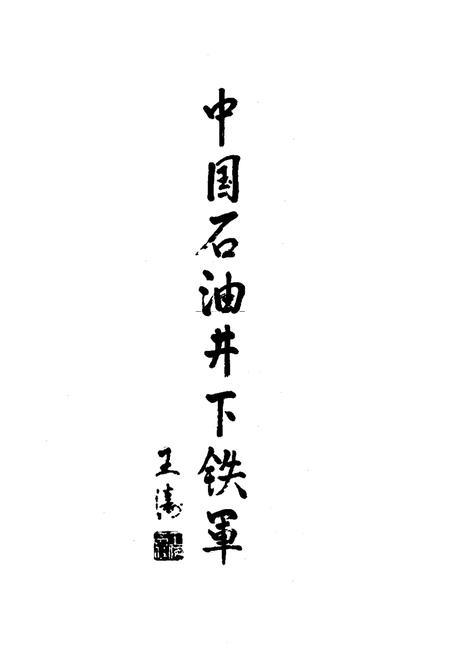 中国石油井下铁軍
王涛